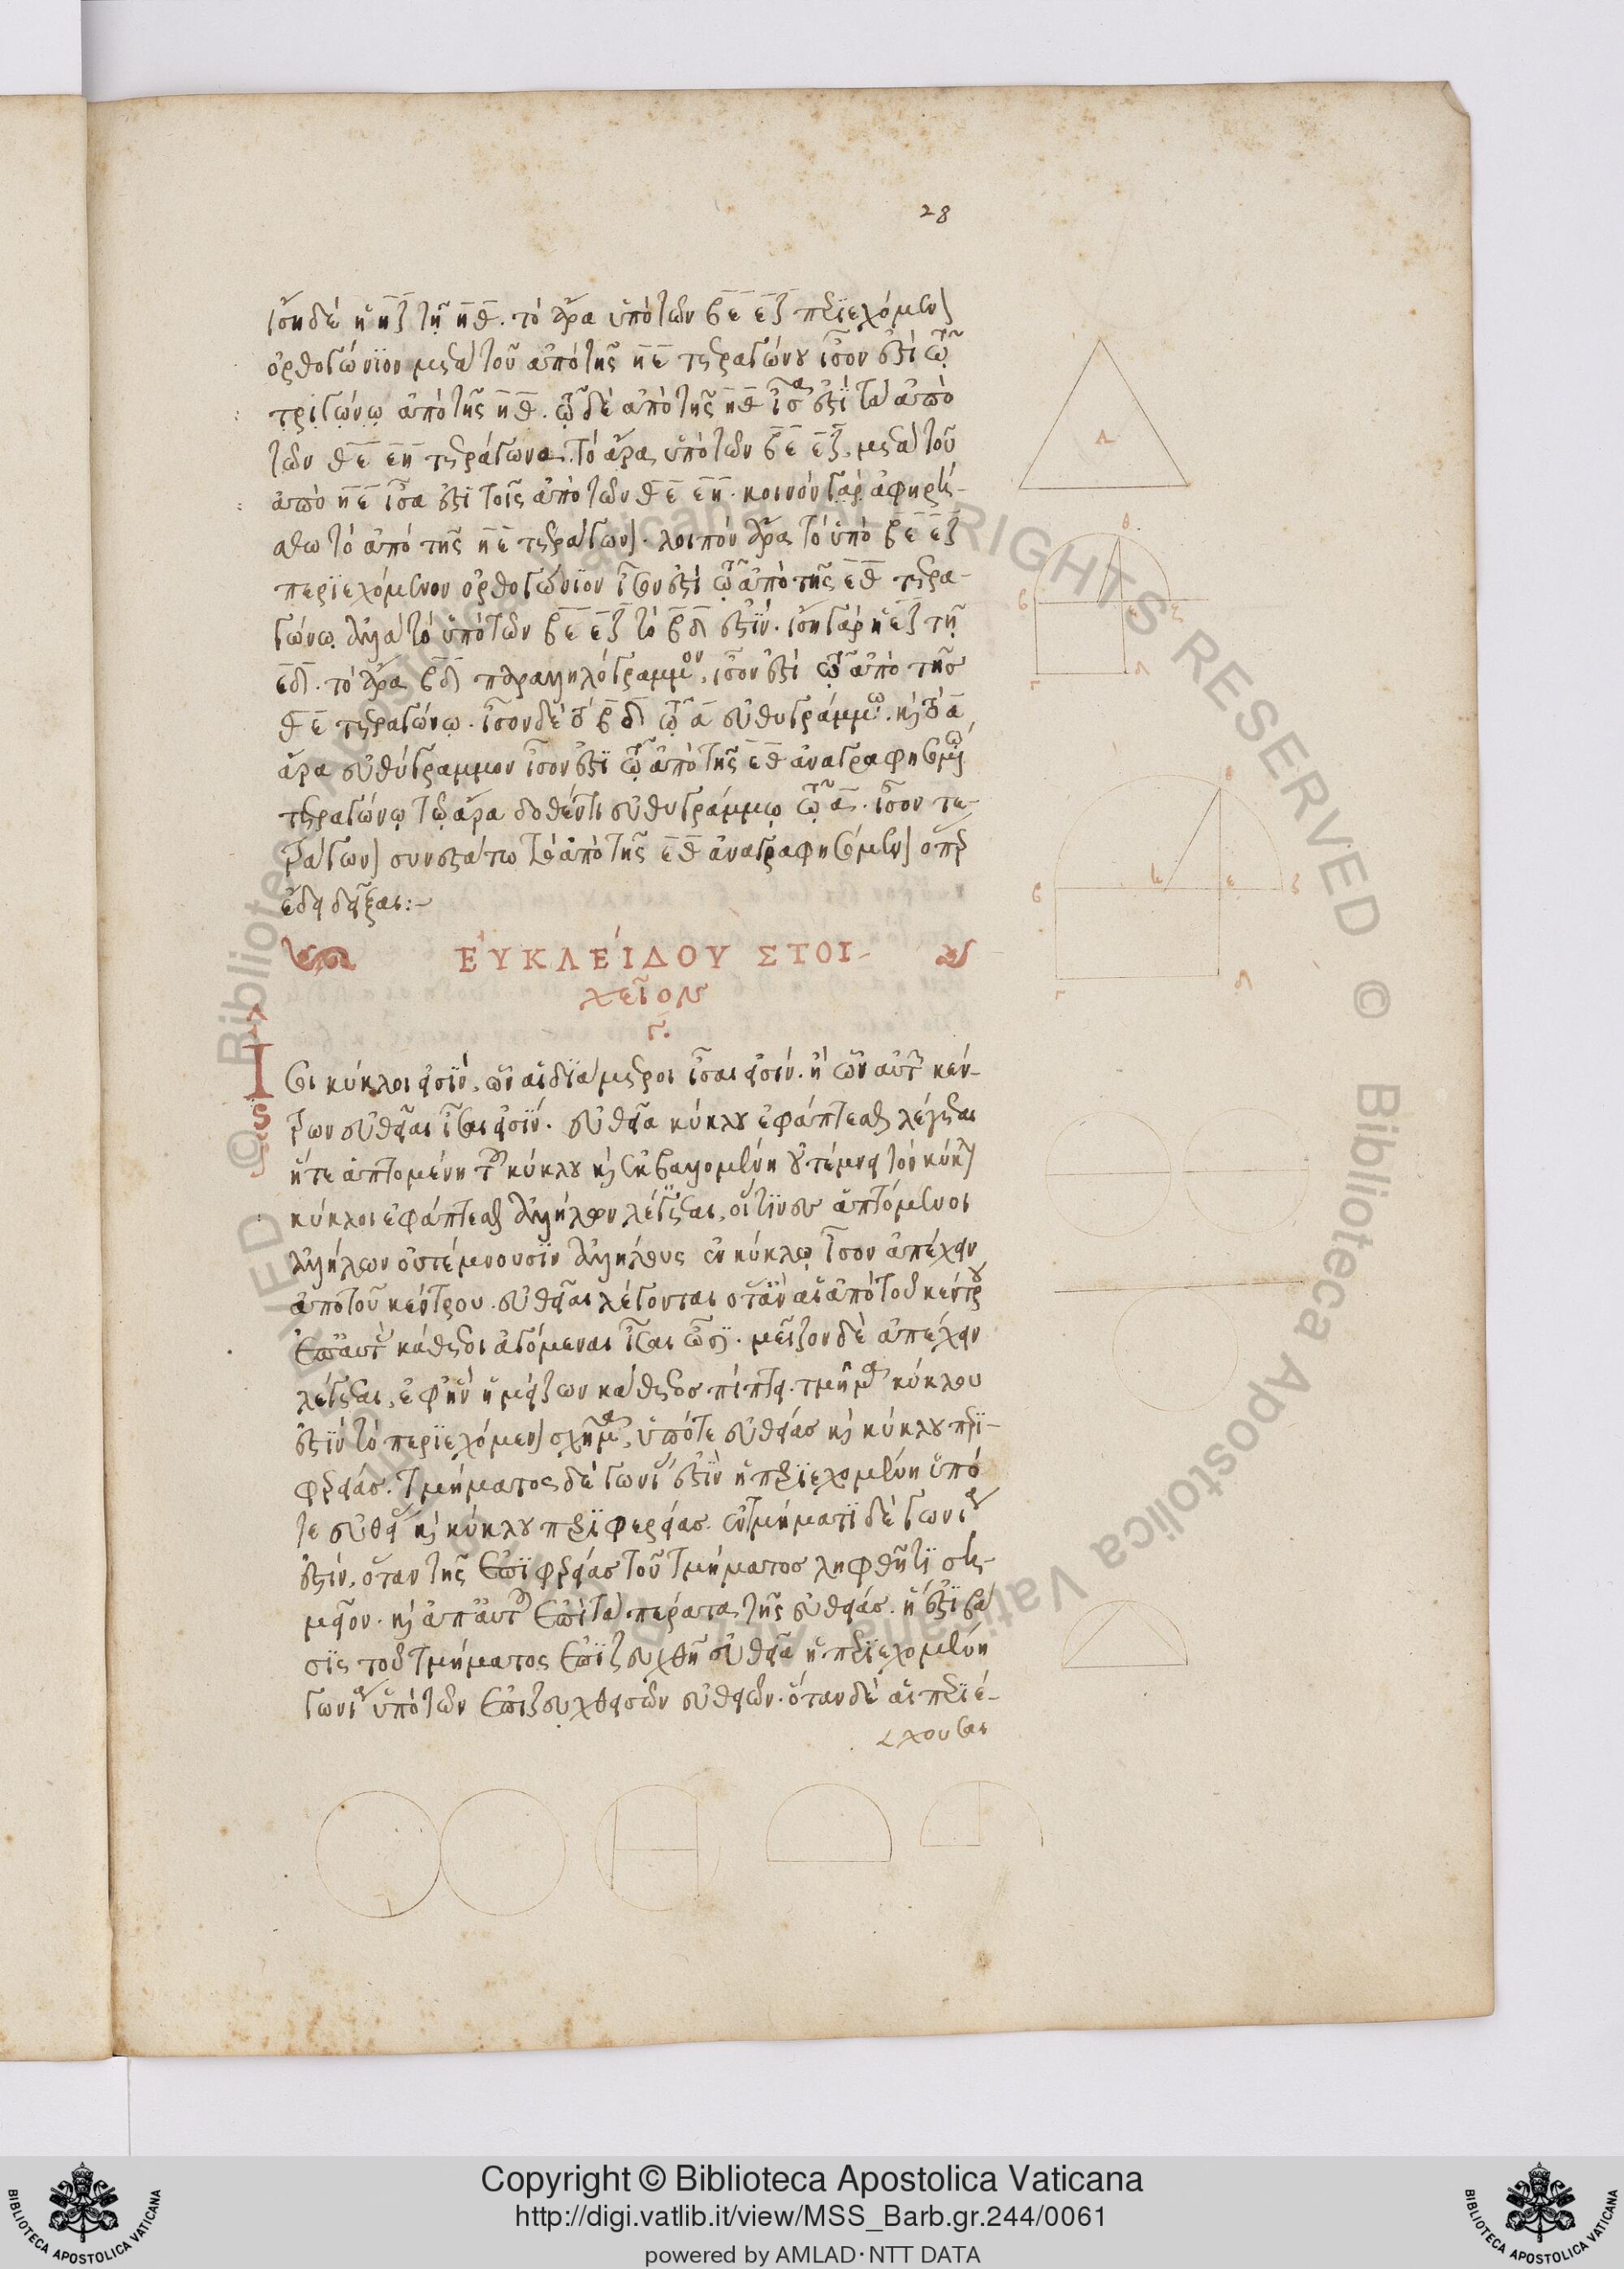 28
ἴση δὲ ἡ ηζ τῇ ηθ. τὸ ἄρα ὑπὸ τῶν βε εζ περιεχόμενον
ὀρθογώνιον μετὰ τοῦ ἀπὸ τῆς ηε τετραγώνου ἴσον ἐστὶ τῷ
ἀπὸ τῆς ηθ. τῷ δὲ ἀπὸ τῆς ηθ ἴσα ἐστὶ τὰ ἀπὸ
τῶν θε εη τετράγωνα. τὸ ἄρα ὑπὸ τῶν βε εζ, μετὰ τοῦ
ἀπὸ ηε ἴσα ἐστὶ τοῖς ἀπὸ τῶν θε εη. κοινὸν γὰρ ἀφηρή-
σθω τὸ ἀπό τῆς ηε τετράγωνον. λοιπὸν ἄρα τὸ ὑπὸ βε εζ
περιεχόμενον ὀρθογώνιον ἴσον ἐστὶ τῷ ἀπὸ τῆς εθ τετρα-
γώνῳ. ἀλλὰ τὸ ὑπὸ τῶν βε εζ τὸ βδ ἐστίν. ἴση γὰρ ἡ εζ τῇ
εδ. τὸ ἄρα βδ παραλληλόγραμμον, ἴσον ἐστὶ τῷ ἀπὸ τῆς
θε τετραγώνῳ. ἴσον δὲ τὸ βδ τῷ α εὐθυγράμμῳ. καὶ τὸ α
ἄρα εὐθύγραμμον ἴσον ἐστὶ τῷ ἀπὸ τῆς εθ ἀναγραφησομένῳ
τετραγώνῳ τῷ ἄρα δοθέντι εὐθυγράμμῳ τῷ α. ἴσον τε-
τράγωνον συνεστάτω τὸ ἀπὸ τῆς εθ ἀναγραφησόμενον ὅπερ
ἔδει δεῖξαι:-
ἘΥΚΛΕΊΔΟΥ ΣΤΟΙ-
χεῖον
γ.
Ἴσοι κύκλοι εἰσίν, ὧν αἱ διάμετροι ἴσαι εἰσίν. ἢ ὧν αἱ ἐκ τῶν κέν-
τρων εὐθεῖαι ἴσαι εἰσίν. εὐθεῖα κύκλου ἐφάπτεσθαι λέγεται
ἥτε ἁπτομένη τοῦ κύκλου καὶ ἐκβαλλομένη οὐ τέμνει τὸν κύκλον
κύκλοι ἐφάπτεσθαι ἀλλήλων λέγεται, οἵτινες ἁπτόμενοι
ἀλλήλων οὐ τέμνουσιν ἀλλήλους ἐν κύκλῳ ἴσον ἀπέχειν
ἀπὸ τοῦ κέντρου. εὐθεῖαι λέγονται ὅταν αἱ ἀπὸ τοῦ κέντρου
ἐπ' αὐτὰς κάθετοι ἀγόμεναι ἴσαι ὦσι. μεῖζον δὲ ἀπέχειν
λέγεται, ἐφ' ἣν ἡ μείζων κάθετος πίπτει. τμῆμα κύκλου
ἐστὶν τὸ περιεχόμενον σχῆμα, ὑπό τε εὐθείας καὶ κύκλου περι-
φερείας. τμήματος δὲ γωνία ἐστὶν ἡ περιεχομένη ὑπό
τε εὐθείας καὶ κύκλου περιφερείας. ἐν τμήματι δὲ γωνία
ἐστίν, ὅταν τῆς ἐπιφερείας τοῦ τμήματος ληφθῇ τι ση-
μεῖον. καὶ ἀπ' αὐτοῦ ἐπὶ τὰ πέρατα τῆς εὐθείας. ἥ ἐστι βά
σις τοῦ τμήματος ἐπιζευχθῇ εὐθεῖα ἡ περιεχομένη
γωνία ὑπὸ τῶν ἐπιζευχθεισῶν εὐθειῶν. ὅταν δὲ αἱ περιέ-
χουσαι
Copyright © Biblioteca Apostolica Vaticana
http://digi.vatlib.it/view/MSS_Barb.gr.244/0061
powered by AMLAD·NTT DATA